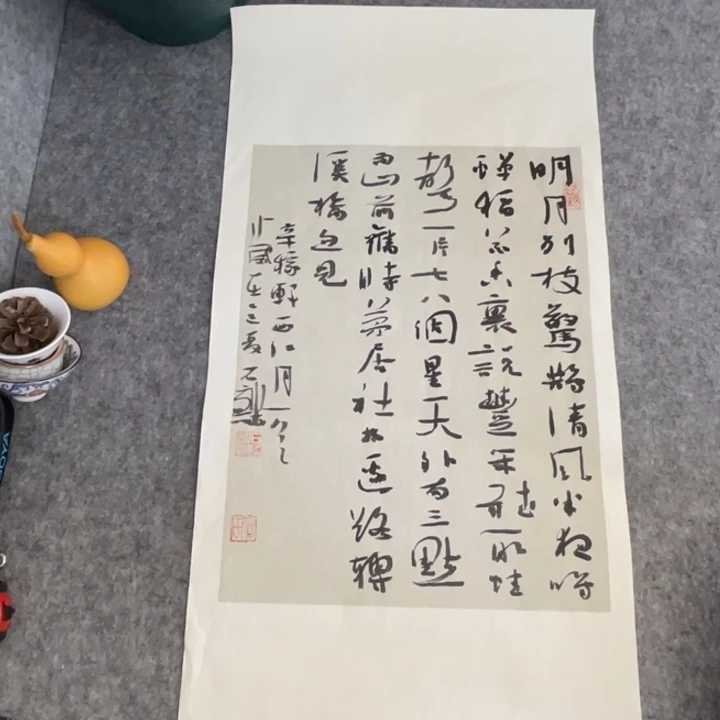 明月別枝驚鵲清風半夜鳴
蟬稻花香裏說豐年聽取蛙
聲一片七八個星天外兩三點
雨山前舊時茅店社林邊路轉
溪橋忽見
辛稼軒西江月一
夏
OYA